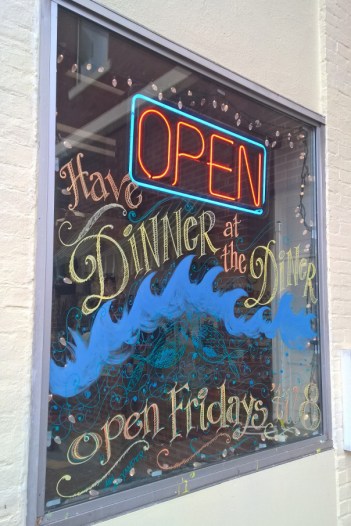 OPEN
Have
DINNER at
the DINER
open Fridays 'til 8